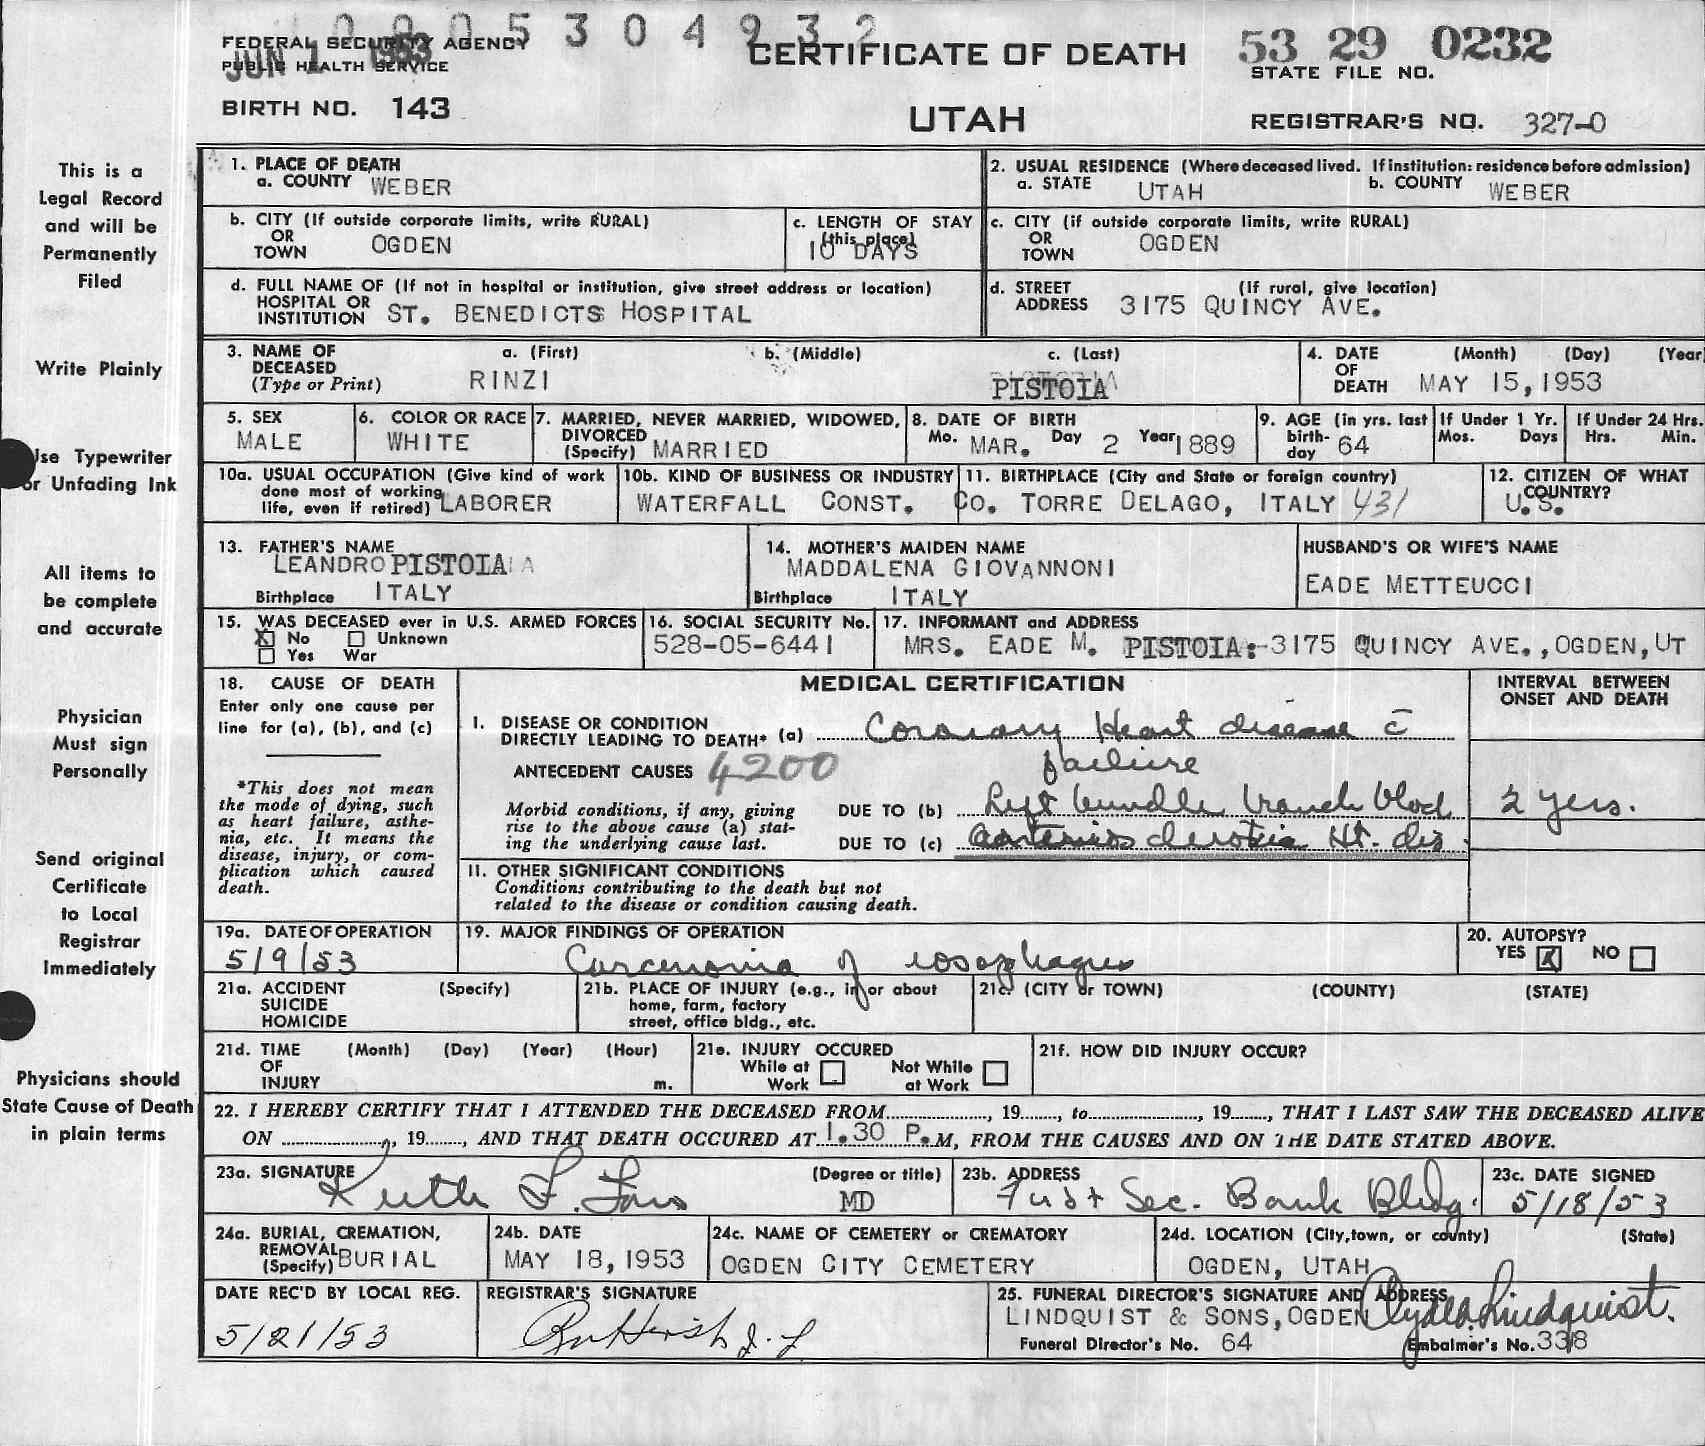 0005304932
FEDERAL SECURITY AGENCY
PUBLIC HEALTH SERVICE
JUN 1 1953
CERTIFICATE OF DEATH
53 29 0232
STATE FILE NO.
BIRTH NO. 143
UTAH
REGISTRAR'S NO. 327-0
This is a
Legal Record
and will be
Permanently
Filed
Write Plainly
Use Typewriter
or Unfading Ink
All items to
be complete
and accurate
Physician
Must sign
Personally
Send original
Certificate
to Local
Registrar
Immediately
Physicians should
State Cause of Death
in plain terms
1. PLACE OF DEATH
a. COUNTY WEBER
2. USUAL RESIDENCE (Where deceased lived. If institution: residence before admission)
a. STATE UTAH b. COUNTY WEBER
b. CITY (If outside corporate limits, write RURAL)
OR
TOWN OGDEN
c. LENGTH OF STAY
(this place)
10 DAYS
c. CITY (if outside corporate limits, write RURAL)
OR
TOWN OGDEN
d. FULL NAME OF (If not in hospital or institution, give street address or location)
HOSPITAL OR
INSTITUTION ST. BENEDICTS HOSPITAL
d. STREET (If rural, give location)
ADDRESS 3175 QUINCY AVE.
3. NAME OF DECEASED
(Type or Print)
a. (First) b. (Middle) c. (Last)
RINZI PISTOIA
4. DATE OF DEATH (Month) (Day) (Year)
MAY 15, 1953
5. SEX
MALE
6. COLOR OR RACE
WHITE
7. MARRIED, NEVER MARRIED, WIDOWED,
DIVORCED
(Specify) MARRIED
8. DATE OF BIRTH
Mo. MAR. Day 2 Year 1889
9. AGE (in yrs. last
birth-
day 64
If Under 1 Yr.
Mos. Days
If Under 24 Hrs.
Hrs. Min.
10a. USUAL OCCUPATION (Give kind of work
done most of working
life, even if retired) LABORER
10b. KIND OF BUSINESS OR INDUSTRY
WATERFALL CONST. CO.
11. BIRTHPLACE (City and State or foreign country)
TORRE DELAGO, ITALY 431
12. CITIZEN OF WHAT
COUNTRY?
U.S.
13. FATHER'S NAME
LEANDRO PISTOIA
Birthplace ITALY
14. MOTHER'S MAIDEN NAME
MADDALENA GIOVANNONI
Birthplace ITALY
HUSBAND'S OR WIFE'S NAME
EADE METTEUCCI
15. WAS DECEASED ever in U.S. ARMED FORCES
X No Unknown
Yes War
16. SOCIAL SECURITY No.
528-05-6441
17. INFORMANT and ADDRESS
MRS. EADE M. PISTOIA:-3175 QUINCY AVE., OGDEN, UT
18. CAUSE OF DEATH
Enter only one cause per
line for (a), (b), and (c)
*This does not mean
the mode of dying, such
as heart failure, asthe-
nia, etc. It means the
disease, injury, or com-
plication which caused
death.
MEDICAL CERTIFICATION
INTERVAL BETWEEN
ONSET AND DEATH
I. DISEASE OR CONDITION
DIRECTLY LEADING TO DEATH* (a) Coronary Heart disease c̄
failure
ANTECEDENT CAUSES 4200
Morbid conditions, if any, giving
rise to the above cause (a) stat-
ing the underlying cause last.
DUE TO (b) Left bundle branch block 2 yrs.
DUE TO (c) arteriosclerotic Ht. dis.
II. OTHER SIGNIFICANT CONDITIONS
Conditions contributing to the death but not
related to the disease or condition causing death.
19a. DATE OF OPERATION
5/9/53
19. MAJOR FINDINGS OF OPERATION
Carcenoma of eosophagus
20. AUTOPSY?
YES X NO
21a. ACCIDENT
SUICIDE
HOMICIDE
(Specify)
21b. PLACE OF INJURY (e.g., in or about
home, farm, factory
street, office bldg., etc.
21c. (CITY or TOWN) (COUNTY) (STATE)
21d. TIME (Month) (Day) (Year) (Hour)
OF
INJURY m.
21e. INJURY OCCURED
While at Work
Not While at Work
21f. HOW DID INJURY OCCUR?
22. I HEREBY CERTIFY THAT I ATTENDED THE DECEASED FROM , 19 , to , 19 , THAT I LAST SAW THE DECEASED ALIVE
ON , 19 , AND THAT DEATH OCCURED AT 1.30 P.M, FROM THE CAUSES AND ON THE DATE STATED ABOVE.
23a. SIGNATURE (Degree or title)
MD
23b. ADDRESS
First Sec. Bank Bldg.
23c. DATE SIGNED
5/18/53
24a. BURIAL, CREMATION,
REMOVAL
(Specify) BURIAL
24b. DATE
MAY 18, 1953
24c. NAME OF CEMETERY or CREMATORY
OGDEN CITY CEMETERY
24d. LOCATION (City, town, or county) (State)
OGDEN, UTAH
DATE REC'D BY LOCAL REG.
5/21/53
REGISTRAR'S SIGNATURE
25. FUNERAL DIRECTOR'S SIGNATURE AND ADDRESS
LINDQUIST & SONS, OGDEN Clyde Lindquist.
Funeral Director's No. 64 Embalmer's No. 338